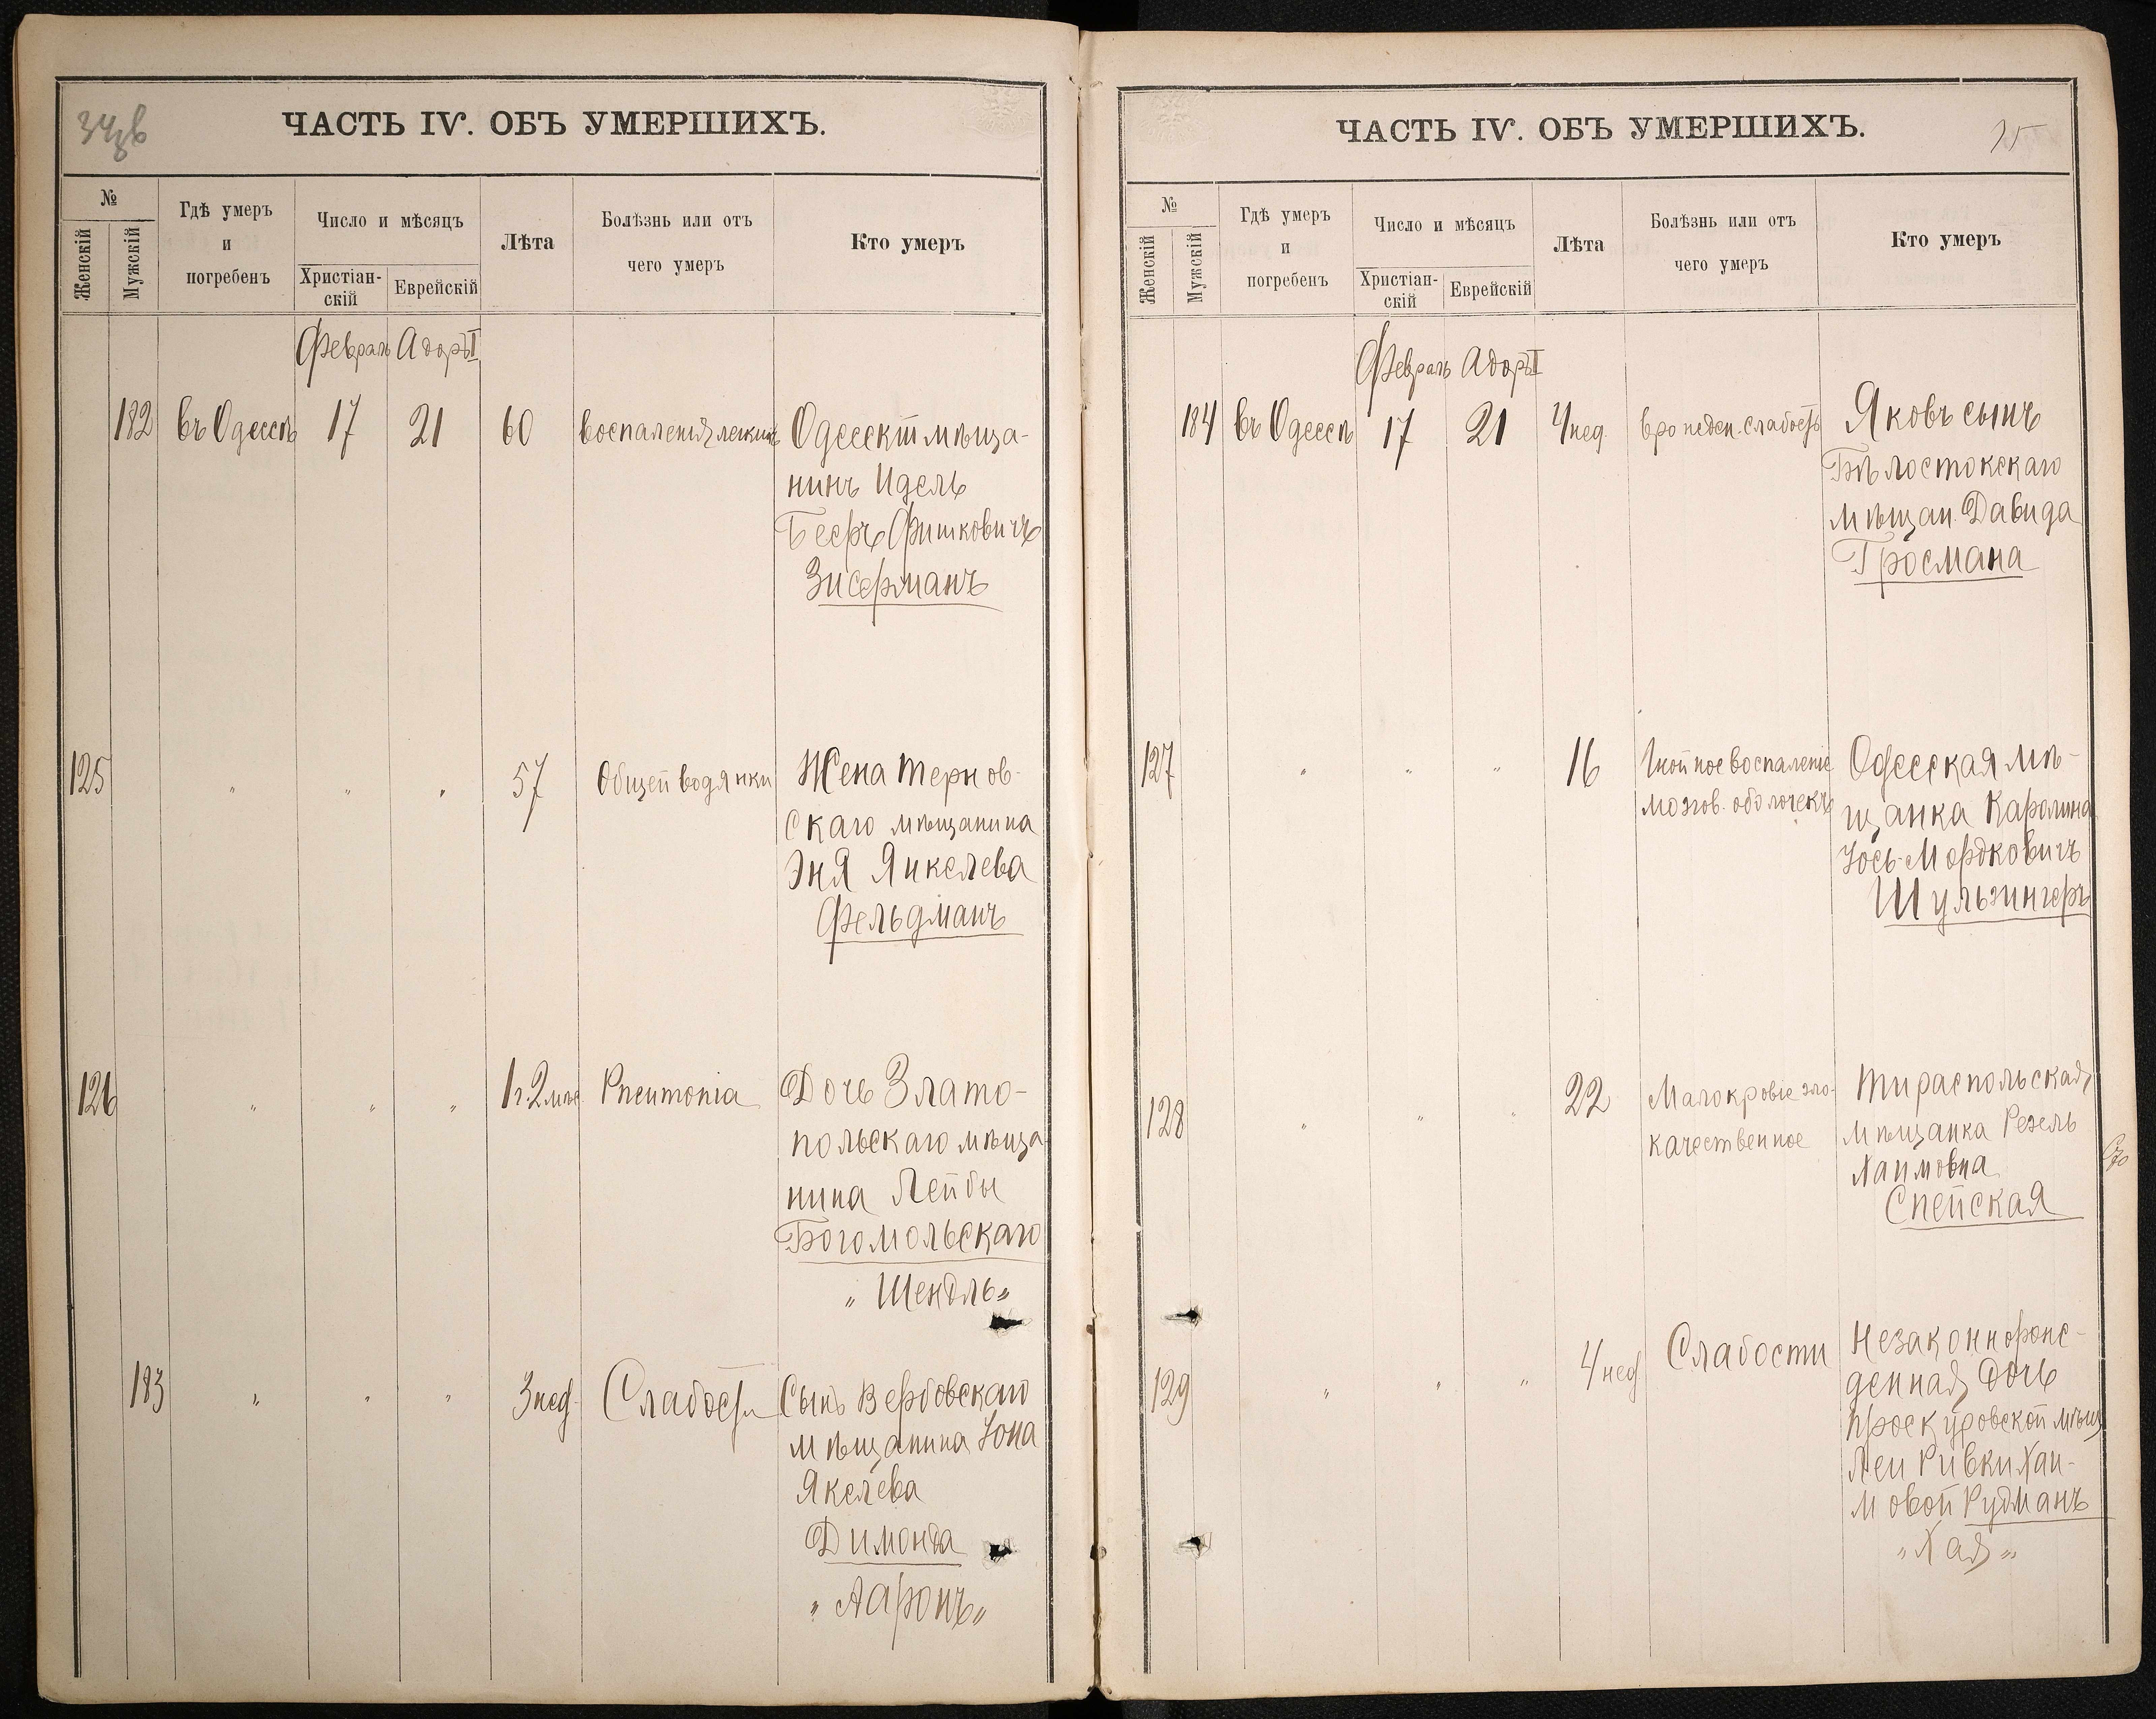 ЧАСТЬ IV. ОБЪ УМЕРШИХЪ.
№
Женскій
Мужскій
Гдѣ умеръ
и
погребенъ
Число и мѣсяцъ
Христіан-
скій
Еврейскій
Лѣта
Болѣзнь или отъ
чего умеръ
Кто умеръ
Февраль Адоръ I
182 въ Одессѣ 17 21 60 воспаленія легкихъ Одесскій мѣща-
нинъ Идель
Беръ Фишковичъ
Зисерманъ
125 " " " 57 Общей водянки Жена Тернов-
скаго мѣщанина
Эня Янкелева
Фельдманъ
126 " " " 1г. 2 мѣс Pneumonia Дочь Злато-
польскаго мѣща
нина Лейбы
Богомольскаго
"Шендль"
183 " " " 3 нед. Слабости Сынъ Вербовскаго
мѣщанина Іона
Якелева
Димонда
"Ааронъ"
ЧАСТЬ IV. ОБЪ УМЕРШИХЪ.
№
Женскій
Мужскій
Гдѣ умеръ
и
погребенъ
Число и мѣсяцъ
Христіан-
скій
Еврейскій
Лѣта
Болѣзнь или отъ
чего умеръ
Кто умеръ
Февраль Адоръ I
184 въ Одессѣ 17 21 4 нед. врожден. слабость Яковъ сынъ
Бѣлостокскаго
мѣщан. Давида
Гросмана
127 " " " 16 Гнойное воспаленіе Одесская мѣ-
мозгов. оболочекъ щанка Каролина
Іось-Мордковичъ
Шульзингеръ
128 " " " 22 Малокровіе зло- Тираспольская
качественное мѣщанка Резель
Хаимовна
Спейская
129 " " " 4 нед Слабости Незаконнорож-
денная Дочь
проскуровской мѣщ
Леи Ривки Хаи-
мовой Рудманъ
"Хая"